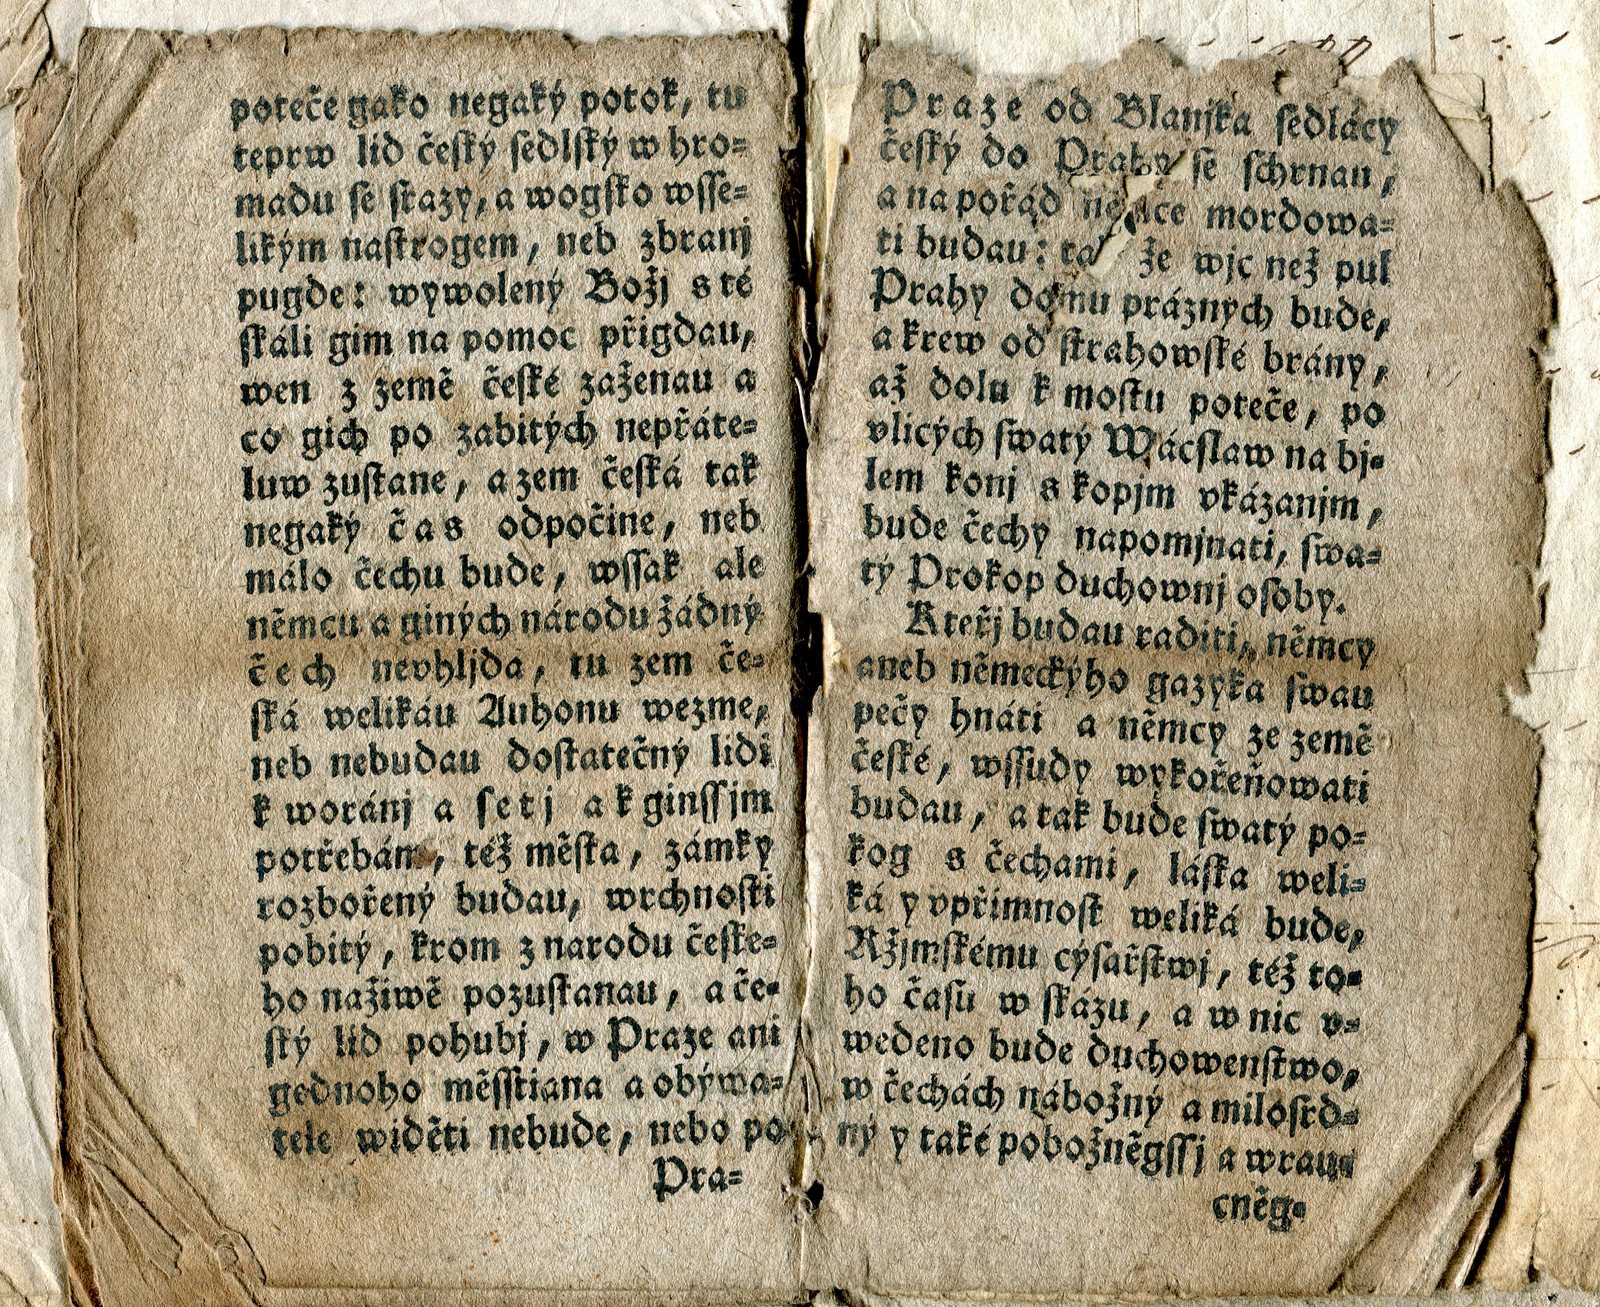 poteče gako negaký potok, tu
teprw lid český sedlský w hro-
madu se srazy, a wogsko wsse-
likým nastrogem, neb zbranj
pugde: wywolený Božj s té
skáli gim na pomoc přigdau,
wen z země české zaženau a
co gich po zabitých nepřáte-
luw zustane, a zem česká tak
negaký čas odpočine, neb
málo čechu bude, wssak ale
němcu a giných národu žádný
čech nevhljda, tu zem če-
ská welikáu Auhonu wezme,
neb nebudau dostatečný lidi
k woránj a setj a k ginssjm
potřebám, též města, zámky
rozbořený budau, wrchnosti
pobitý, krom z narodu česke-
ho nažiwě pozustanau, a če-
ský lid pohubj, w Praze ani
gednoho měsstiana a obýwa-
tele widěti nebude, nebo po
Pra-
Praze od Blanjka sedlácy
český do Prahy se schrnau,
a na pořád němce mordowa-
ti budau: tak že wjc než pul
Prahy domu prázných bude,
a krew od strahowské brány,
až dolu k mostu poteče, po
vlicých swatý Wácslaw na bj-
lem konj s kopjm vkázanjm,
bude čechy napomjnati, swa-
tý Prokop duchownj osoby.
Kteřj budau raditi, němcy
aneb německýho gazyka swau
pečy hnáti a němcy ze země
české, wssudy wykořeňowati
budau, a tak bude swatý po-
kog s čechami, láska weli-
ká y vpřimnost weliká bude,
Ržjmskému cýsařstwj, též to-
ho času w skázu, a w nic v-
wedeno bude duchowenstwo,
w čechách nábožný a milosrd-
ný y také pobožněgssj a wrau-
cněg-